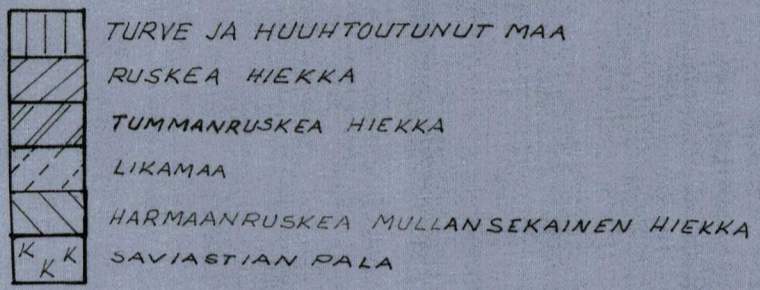 TURVE JA HUUHTOUTUNUT MAA
RUSKEA HIEKKA
TUMMANRUSKEA HIEKKA
LIKAMAA
HARMAANRUSKEA MULLANSEKAINEN HIEKKA
K K K SAVIASTIAN PALA